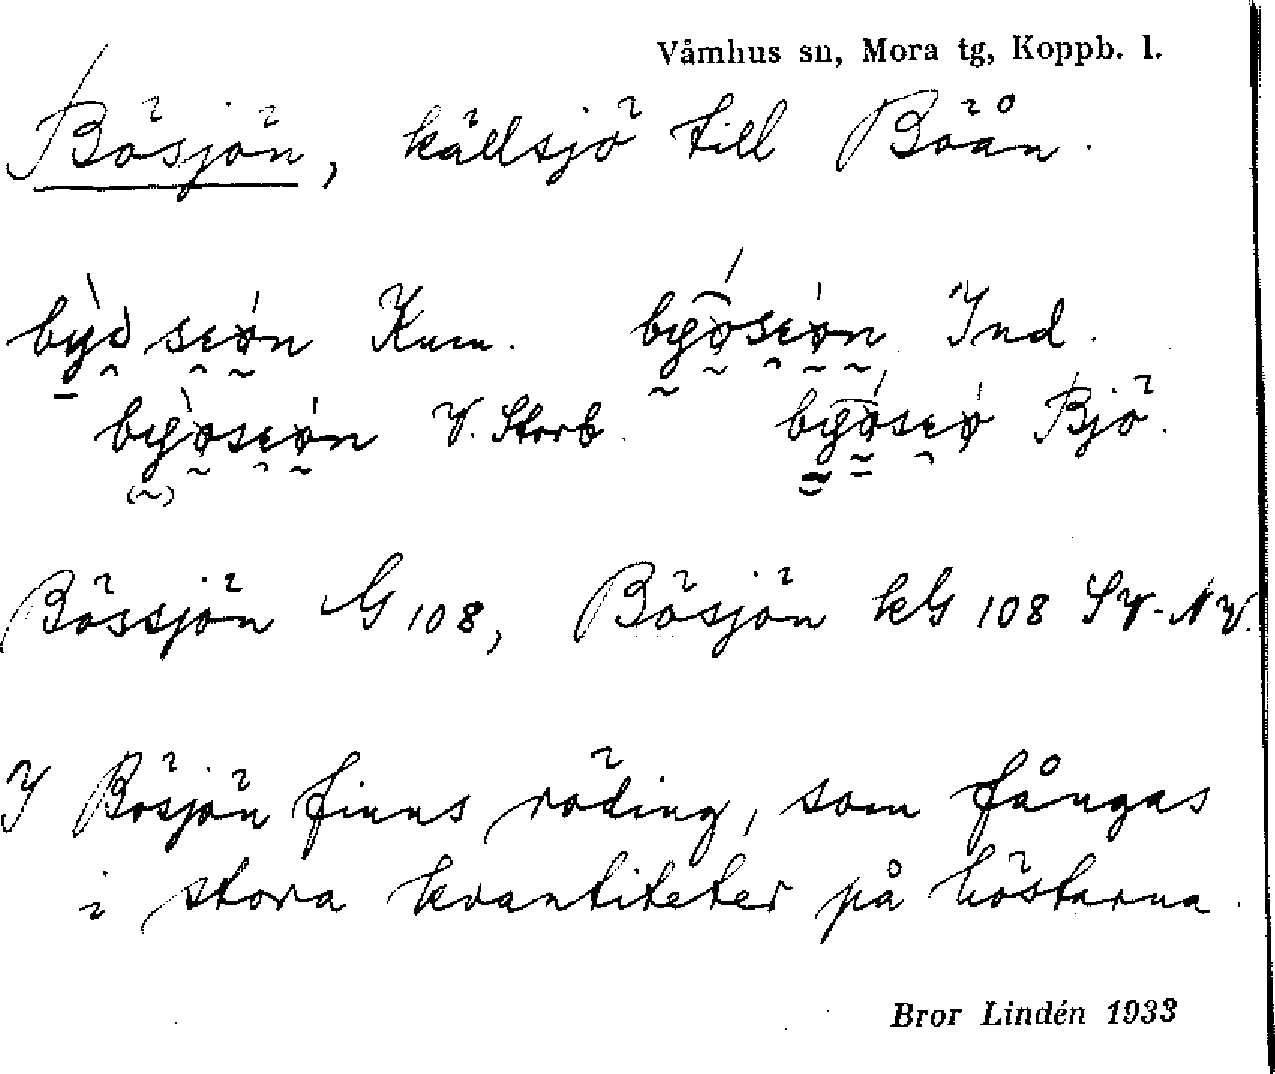 Våmhus sn, Mora tg, Koppb. l.
Bösjön, källsjö till Böån.
Kum. Ind.
V. Storb. Bjö.
Bössjön G 108, Bösjön kG 108 SV-NV.
I Bösjön finns röding, som fångas
i stora kvantiteter på höstarna.
Bror Lindén 1933